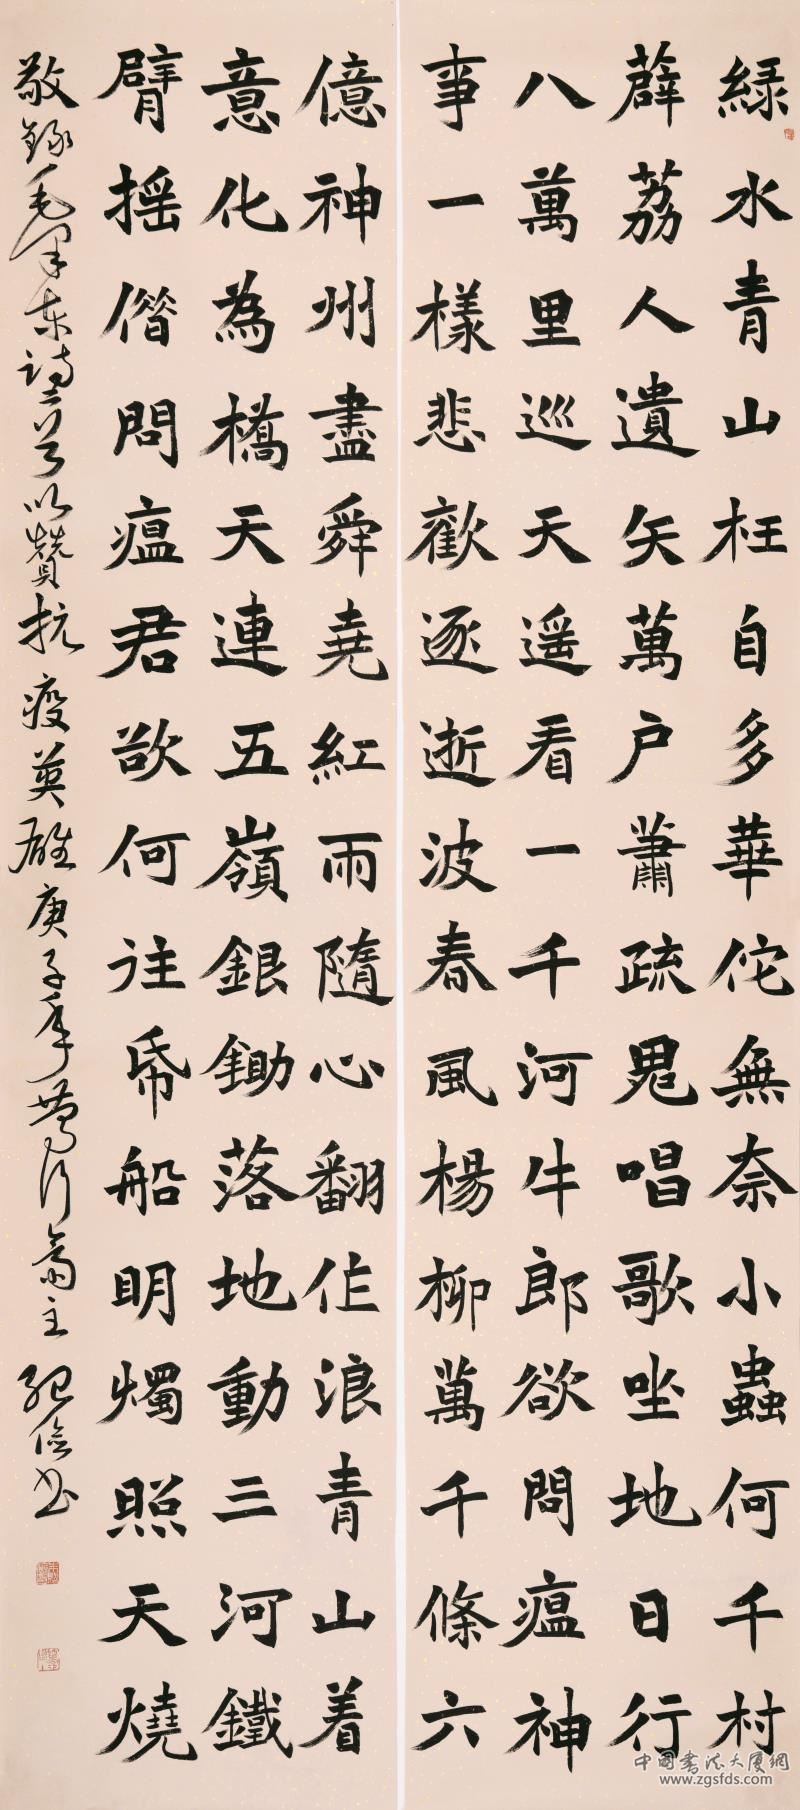 綠水青山枉自多華佗無奈小蟲何千村
薜荔人遺矢萬户蕭疏鬼唱歌坐地日行
八萬里巡天遥看一千河牛郎欲問瘟神
事一樣悲歡逐逝波春風楊柳萬千條六
億神州盡舜堯紅雨隨心翻作浪青山着
意化為橋天連五嶺銀鋤落地動三河鐵
臂摇偺問瘟君欲何往帋船明燭照天燒
敬録毛澤東詩二首以贊抗疫英雄庚子年行斋主书
中国書法大廈網
www.zgsfds.com